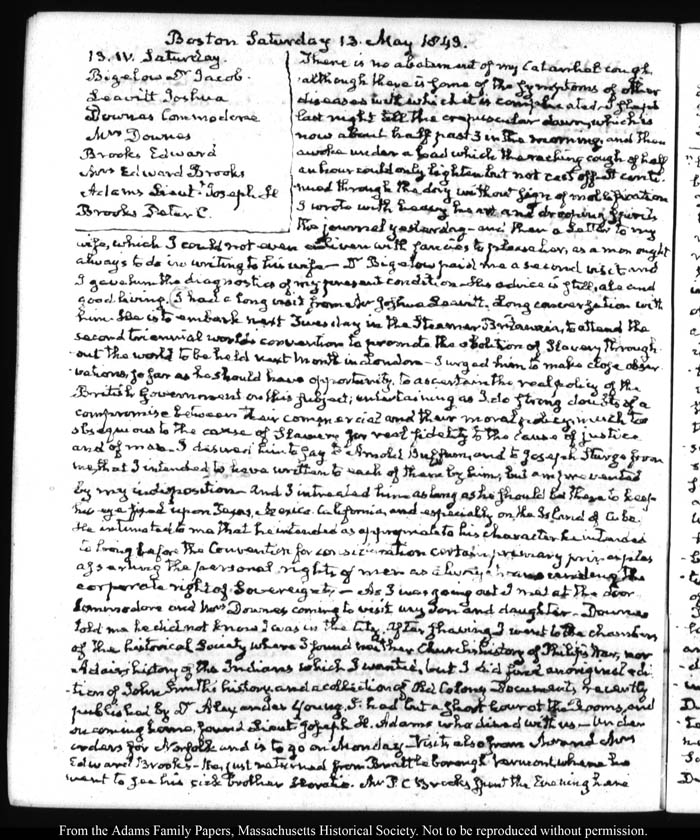 Boston Saturday 13. May 1843.
13. IV. Saturday.
Bigelow Dr. Jacob.
Leavitt Joshua
Downes Commodore
Mrs Downes
Brooks Edward
Mrs Edward Brooks
Adams Lieut. Joseph H
Brooks Peter C.
There is no abatement of my Catarrhal cough,
although there is some of the symptoms of other
diseases with which it is complicated. I slept
last night till the crepuscular dawn, which is
now about half past 3 in the morning, and then
awoke under a load which the racking cough of half
an hour could only lighten but not cast off. It conti-
nued through the day without sign of mollification
I wrote with heavy heart and drooping spirits
the journal of yesterday – and then a Letter to my
wife, which I could not even enliven with fancies to please her, as a man ought
always to do in writing to his wife – Dr Bigelow paid me a second visit and
I gave him the diagnostics of my present condition. His advice is still, ale and
good living. I had a long visit from Mr Joshua Leavitt. Long conversation with
him. He is to embark next Tuesday in the Steamer Britannia, to attend the
second triennial world's convention to promote the abolition of Slavery through-
out the world to be held next month in London – I urged him to make close obser-
vations, so far as he should have opportunity, to ascertain the real policy of the
British Government on this subject; entertaining as I do strong doubts of a
compromise between their commercial and their moral policy, much too
obsequious to the cause of Slavery for real fidelity to the cause of justice
and of man. I desired him to say to Arnold Buffum, and to Joseph Sturge from
me, that I intended to have written to each of them by him, but am prevented
by my indisposition – And I intreated him as long as he should be there to keep
his eye fixed upon Texas, Mexico, California, and especially on the Island of Cuba.
He intimated to me that he intended as appropriate to his character he intended
to bring before the Convention for consideration certain primary principles
asserting the personal rights of men as always transcending the
corporate right of Sovereignty – As I was going out I met at the door
Commodore and Mrs Downes coming to visit my Son and daughter – Downes
told me he did not know I was in the City. After shaving I went to the chambers
of the historical Society where I found neither Church's history of Philip's War, nor
Adair's history of the Indians which I wanted, but I did find an original edi-
tion of John Smith's history, and a collection of Old Colony Documents, recently
published by Dr Alexander Young. I had but a short hour at the rooms, and
on coming home, found Lieut. Joseph H. Adams who dined with us – Under
orders for Norfolk and is to go on Monday – Visits also from Mr and Mrs
Edward Brooks – He, just returned from Brattleborough Vermont, where he
went to see his sick brother Horatio. Mr P. C. Brooks spent the Evening here